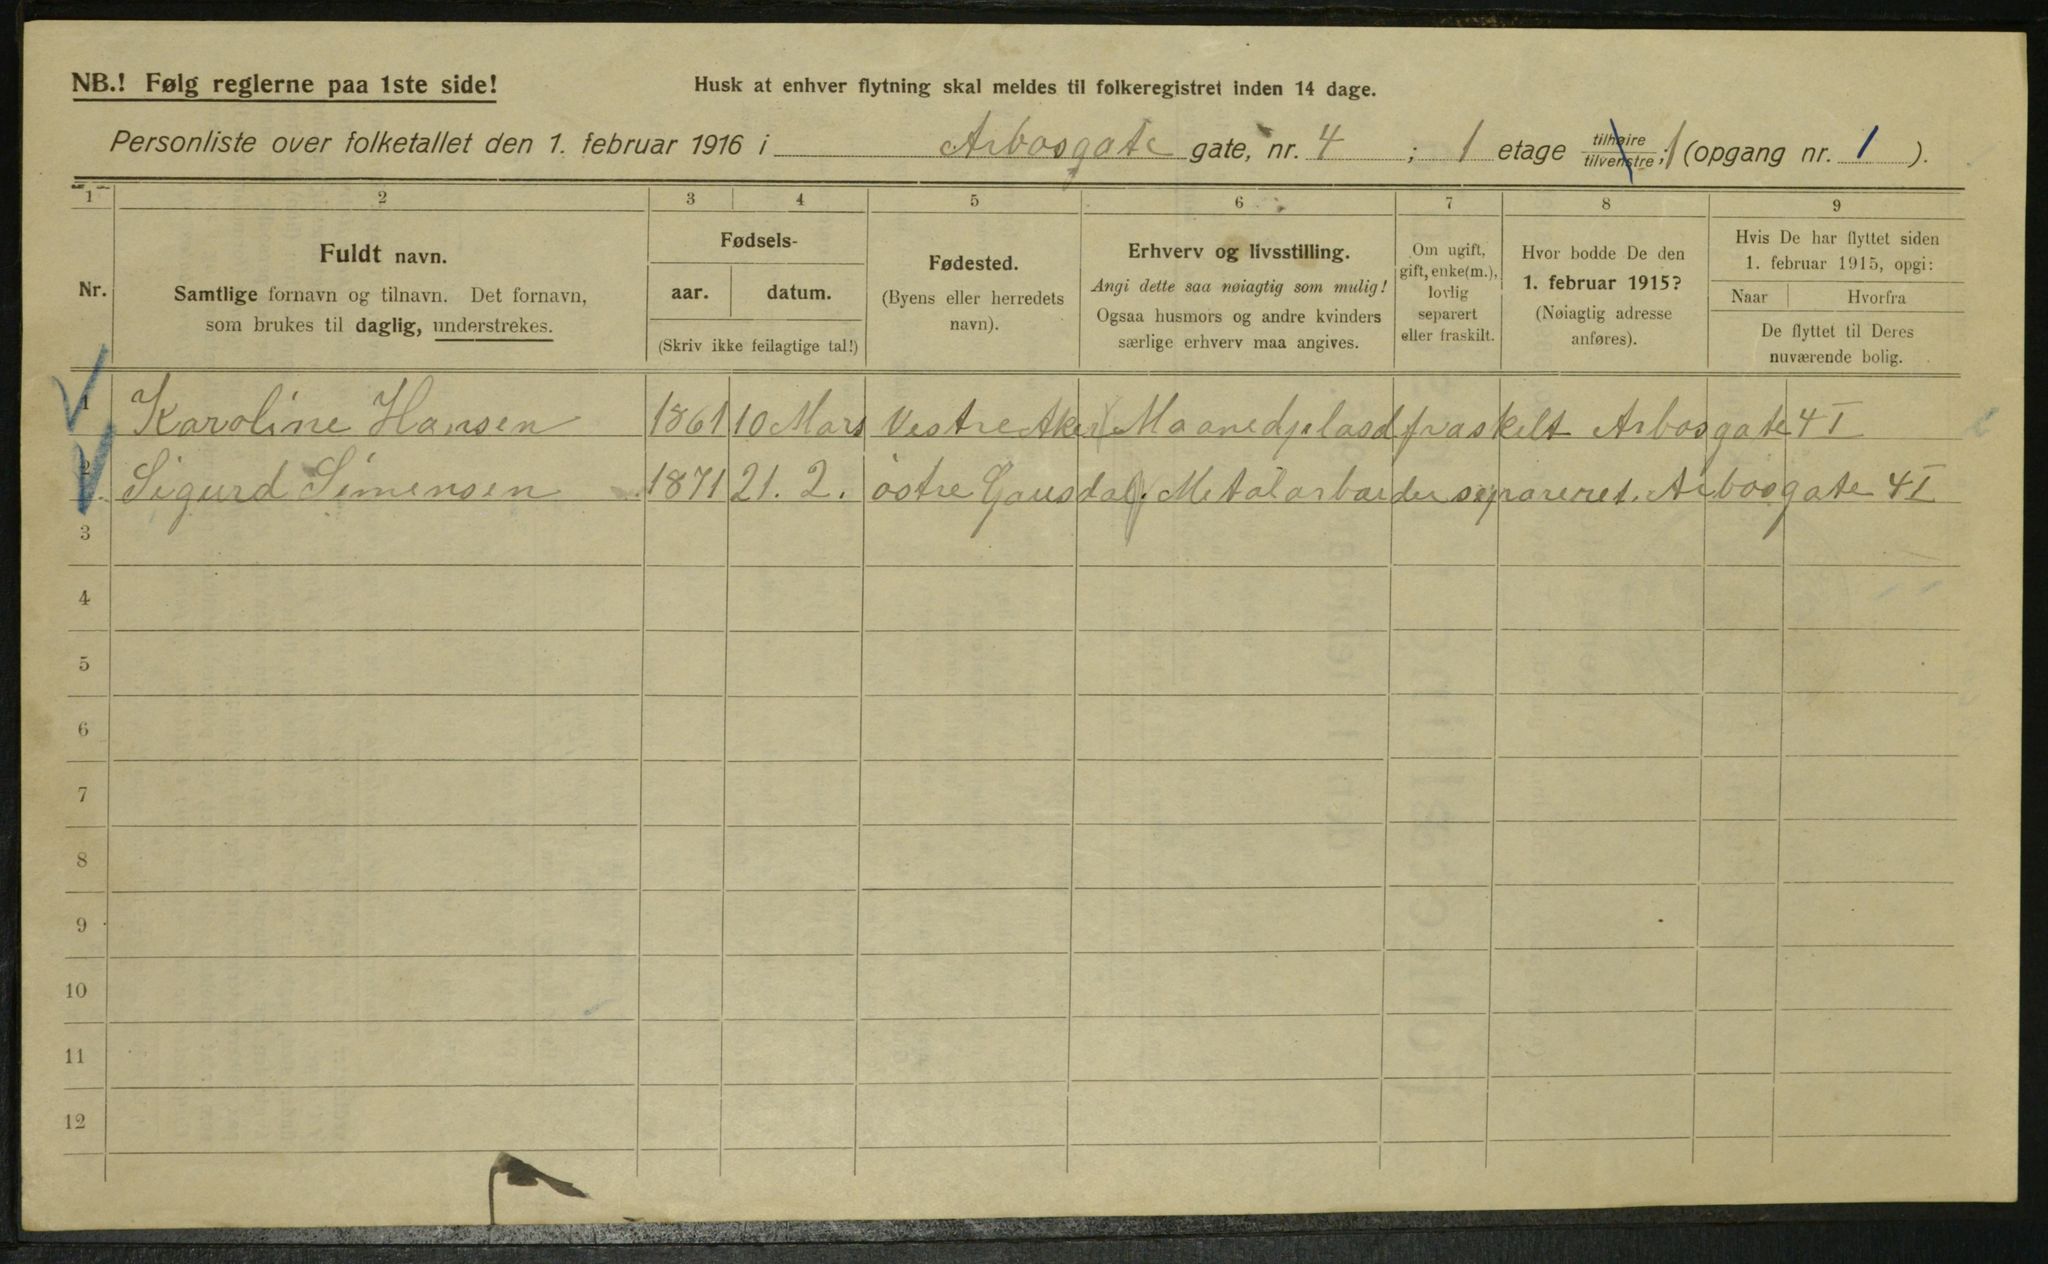 NB.! Følg reglerne paa 1ste side!
Husk at enhver flytning skal meldes til folkeregistret inden 14 dage.
Personliste over folketallet den 1. februar 1916 i Arbosgate gate, nr. 4 ; 1 etage tilhøire tilvenstre ; 1 (opgang nr. 1 ).
1 2 3 4 5 6 7 8 9
Nr.
Fuldt navn.
Samtlige fornavn og tilnavn. Det fornavn,
som brukes til daglig, understrekes.
Fødsels-
aar. datum.
(Skriv ikke feilagtige tal!)
Fødested.
(Byens eller herredets
navn).
Erhverv og livsstilling.
Angi dette saa nøiagtig som mulig!
Ogsaa husmors og andre kvinders
særlige erhverv maa angives.
Om ugift,
gift, enke(m.),
lovlig
separert
eller fraskilt.
Hvor bodde De den
1. februar 1915?
(Nøiagtig adresse
anføres).
Hvis De har flyttet siden
1. februar 1915, opgi:
Naar Hvorfra
De flyttet til Deres
nuværende bolig.
1 Karoline Hansen 1861 10 Mars Vestre Aker Maanedsplasd fraskelt Arbosgate 4 I
2 Sigurd Simensen 1871 21. 2. østre Gausdal. Metalarbaider separeret. Arbosgate 4 I
3
4
5
6
7
8
9
10
11
12